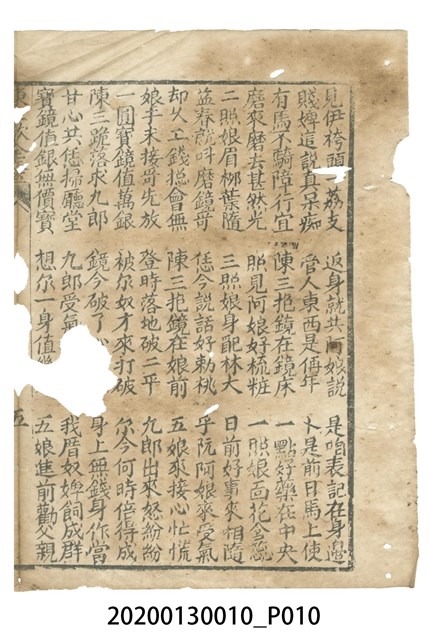 見伊袴頭荔支 返身就共阿娘說 是咱表記在身邊
賤婢這說真呆痴 管人東西是侢年 卜是前日馬上使
有馬不騎障行宜 陳三抱鏡在鏡床 一點好藥在中央
磨來磨去甚然光 照見阿娘好梳粧 一照娘面花含蕊
二照娘眉柳葉隨 三照娘身配林大 日前好事來相隨
益春就叫磨鏡哥 恁今說話好勅桃 乎阮阿娘來受氣
却欠工錢總會無 陳三抱鏡在娘前 五娘來接心忙慌
娘手未接哥先放 登時落地破二平 九郎出來怒紛紛
一圓寶鏡值萬銀 被尔奴才來打破 尔今何時倍得成
陳三跪落求九郎 鏡今破了 身上無錢身作當
甘心共恁掃廳堂 九郎受氣 我厝奴婢飼成群
寶鏡值銀無價寶 想尔一身值 五娘進前勸父親
五
20200130010_P010